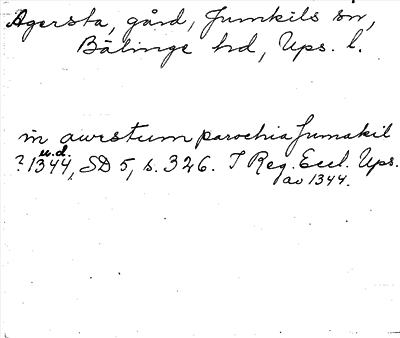 Agersta, gård, Jumkils sn,
Bälinge hd, Ups. l.
in awrstum parochia Jumakil
u.d.
? 1344, SD 5, s. 326. I Reg. Eccl. Ups.
av 1344.